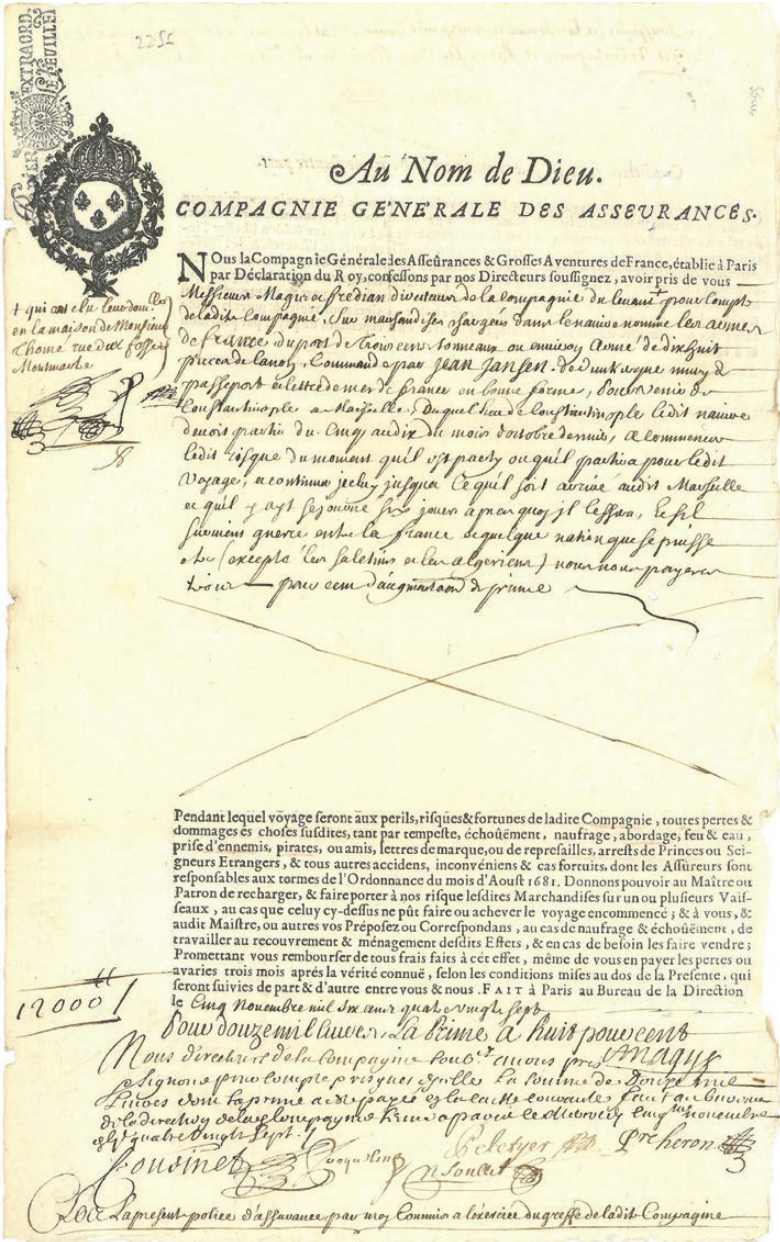 2255
EXTRAORD.
FEUILLE
Au Nom de Dieu.
COMPAGNIE GE'NE'RALE DES ASSEURANCES.
NOus la Compagnie Générale des Assûrances & Grosses Aventures de France, établie à Paris
par Déclaration du Roy, confessons par nos Directeurs soussignez, avoir pris de vous
Messieurs Magis directeurs de la compagnie du levant pour compte
de ladite Compagnie, Sur marchandises chargées dans le navire nommé les armes
de france du port de Trois cens tonneaux ou environ Armé de dix huit
pieces de canon, Commandé par Jean Jansen de Dunkerque muny de
passeport et lettre de mer de france en bonne forme, pour venir de
Constantinople a Marseille, Duquel lieu de Constantinople ledit navire
devoit partir du Cinq au dix du mois d'octobre dernier, A commencer
ledit risque du moment qu'il est party ou qu'il partira pour ledit
Voyage, et continuer jusqu'a Ce qu'il soit arrivé audit Marseille
et qu'il y ayt sejourné six jours apres quoy il cessera, Et s'il
survient guerre entre la france et quelque nation que se puisse
etre (excepté les saletins et les algeriens) nous nous payerez
trois pour cent d'augmentation de prime
qui ont elu leur domicille
en la maison de Monsieur
Thomé rue des fossez
Montmartre
Pendant lequel võyage seront aux perils, risques & fortunes de ladite Compagnie, toutes pertes &
dommages és choses susdites, tant par tempeste, échoûëment, naufrage, abordage, feu & eau,
prise d'ennemis, pirates, ou amis, lettres de marque, ou de represailles, arrests de Princes ou Sei-
gneurs Etrangers, & tous autres accidens, inconvéniens & cas fortuits, dont les Assûreurs sont
responsables aux tormes de l'Ordonnance du mois d'Aoust 1681. Donnons pouvoir au Maître ou
Patron de recharger, & faire porter à nos risque lesdites Marchandises sur un ou plusieurs Vais-
seaux, au cas que celuy cy-dessus ne pût faire ou achever le voyage encommencé; & à vous, &
audit Maistre, ou autres vos Préposez ou Correspondans, au cas de naufrage & échoûëment, de
travailler au recouvrement & ménagement desdits Effets, & en cas de besoin les faire vendre;
Promettant vous rembourser de tous frais faits à cet effet, même de vous en payer les pertes ou
avaries trois mois aprés la vérité connuë, selon les conditions mises au dos de la Presente, qui
seront suivies de part & d'autre entre vous & nous. FAIT à Paris au Bureau de la Direction
le Cinq Novembre mil six cens quatre vingts sept
12000
Pour douze mil livres, La Prime a huit pour cent
Nous directeurs de la Compagnie Magys
Signons pour compte et risques d'icelle la somme de Douze mil
Livres dont la prime a esté payée fait au bureau
de la direction de la Compagnie a paris le cinq novembre
quatre vingt sept.
Cousinet
Peletyer
Pre heron
N Soullet
La present police d'assurance par moy Commis a l'exercice du greffe de ladite Compagnie